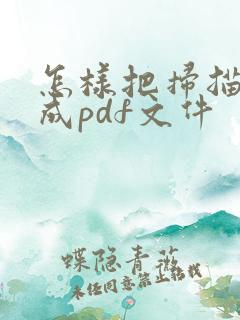 怎樣把掃描
成pdf文件
蝶隐青薇
未经同意禁止转载